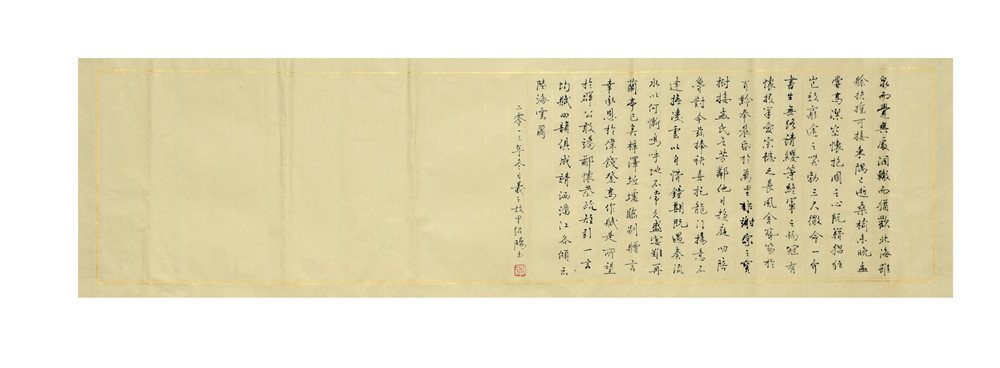 泉而覺爽處涸轍而猶歡北海雖
賒扶搖可接東隅已逝桑榆非晚孟
嘗高潔空懷抱國之心阮籍猖狂
豈效窮途之哭勃三尺微命一介
書生無路請纓等終軍之弱冠有
懷投筆愛宗愨之長風舍簪笏於
百齡奉晨昏於萬里非謝家之寶
樹接孟氏之芳鄰他日趨庭叨陪
鯉對今茲捧袂喜托龍門楊意不
逢撫凌雲以自惜鍾期既遇奏流
水以何慚嗚呼地不常久盛筵難再
蘭亭已矣梓澤丘墟臨別贈言
幸承恩於偉餞登高作賦是所望
於群公敢竭鄙懷恭疏短引一言
均賦四韻俱成請洒潘江各傾云
陸海雲爾
二零一三年冬月羲之故里紹陽書